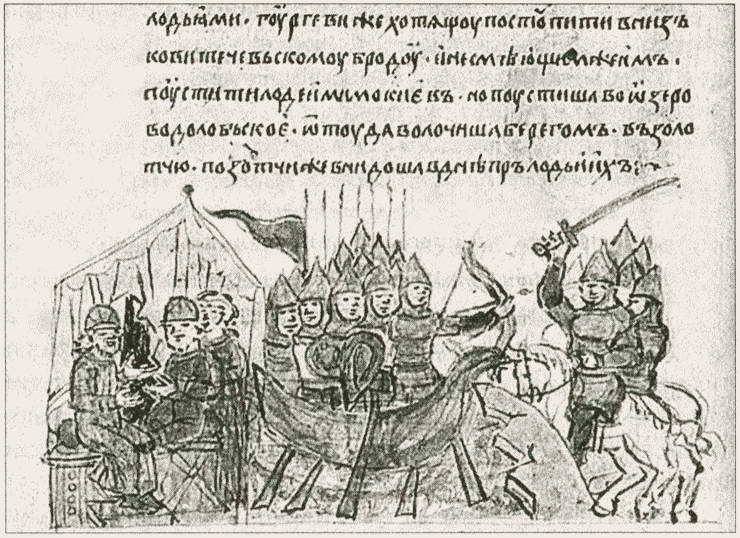 лодьꙗми · гюргеви же хотѧщоу поступити вънизъ
ко витечевьскомоу бродоу · и не смѣющимъ же имъ ·
поустити лодеи мимо киевъ · но поустиша в ѡзеро
в долобьское · ѿтоуда волочиша берегомъ · въ золо
тчю · по золотчи же внидоша в днѣпръ лодьи ихъ